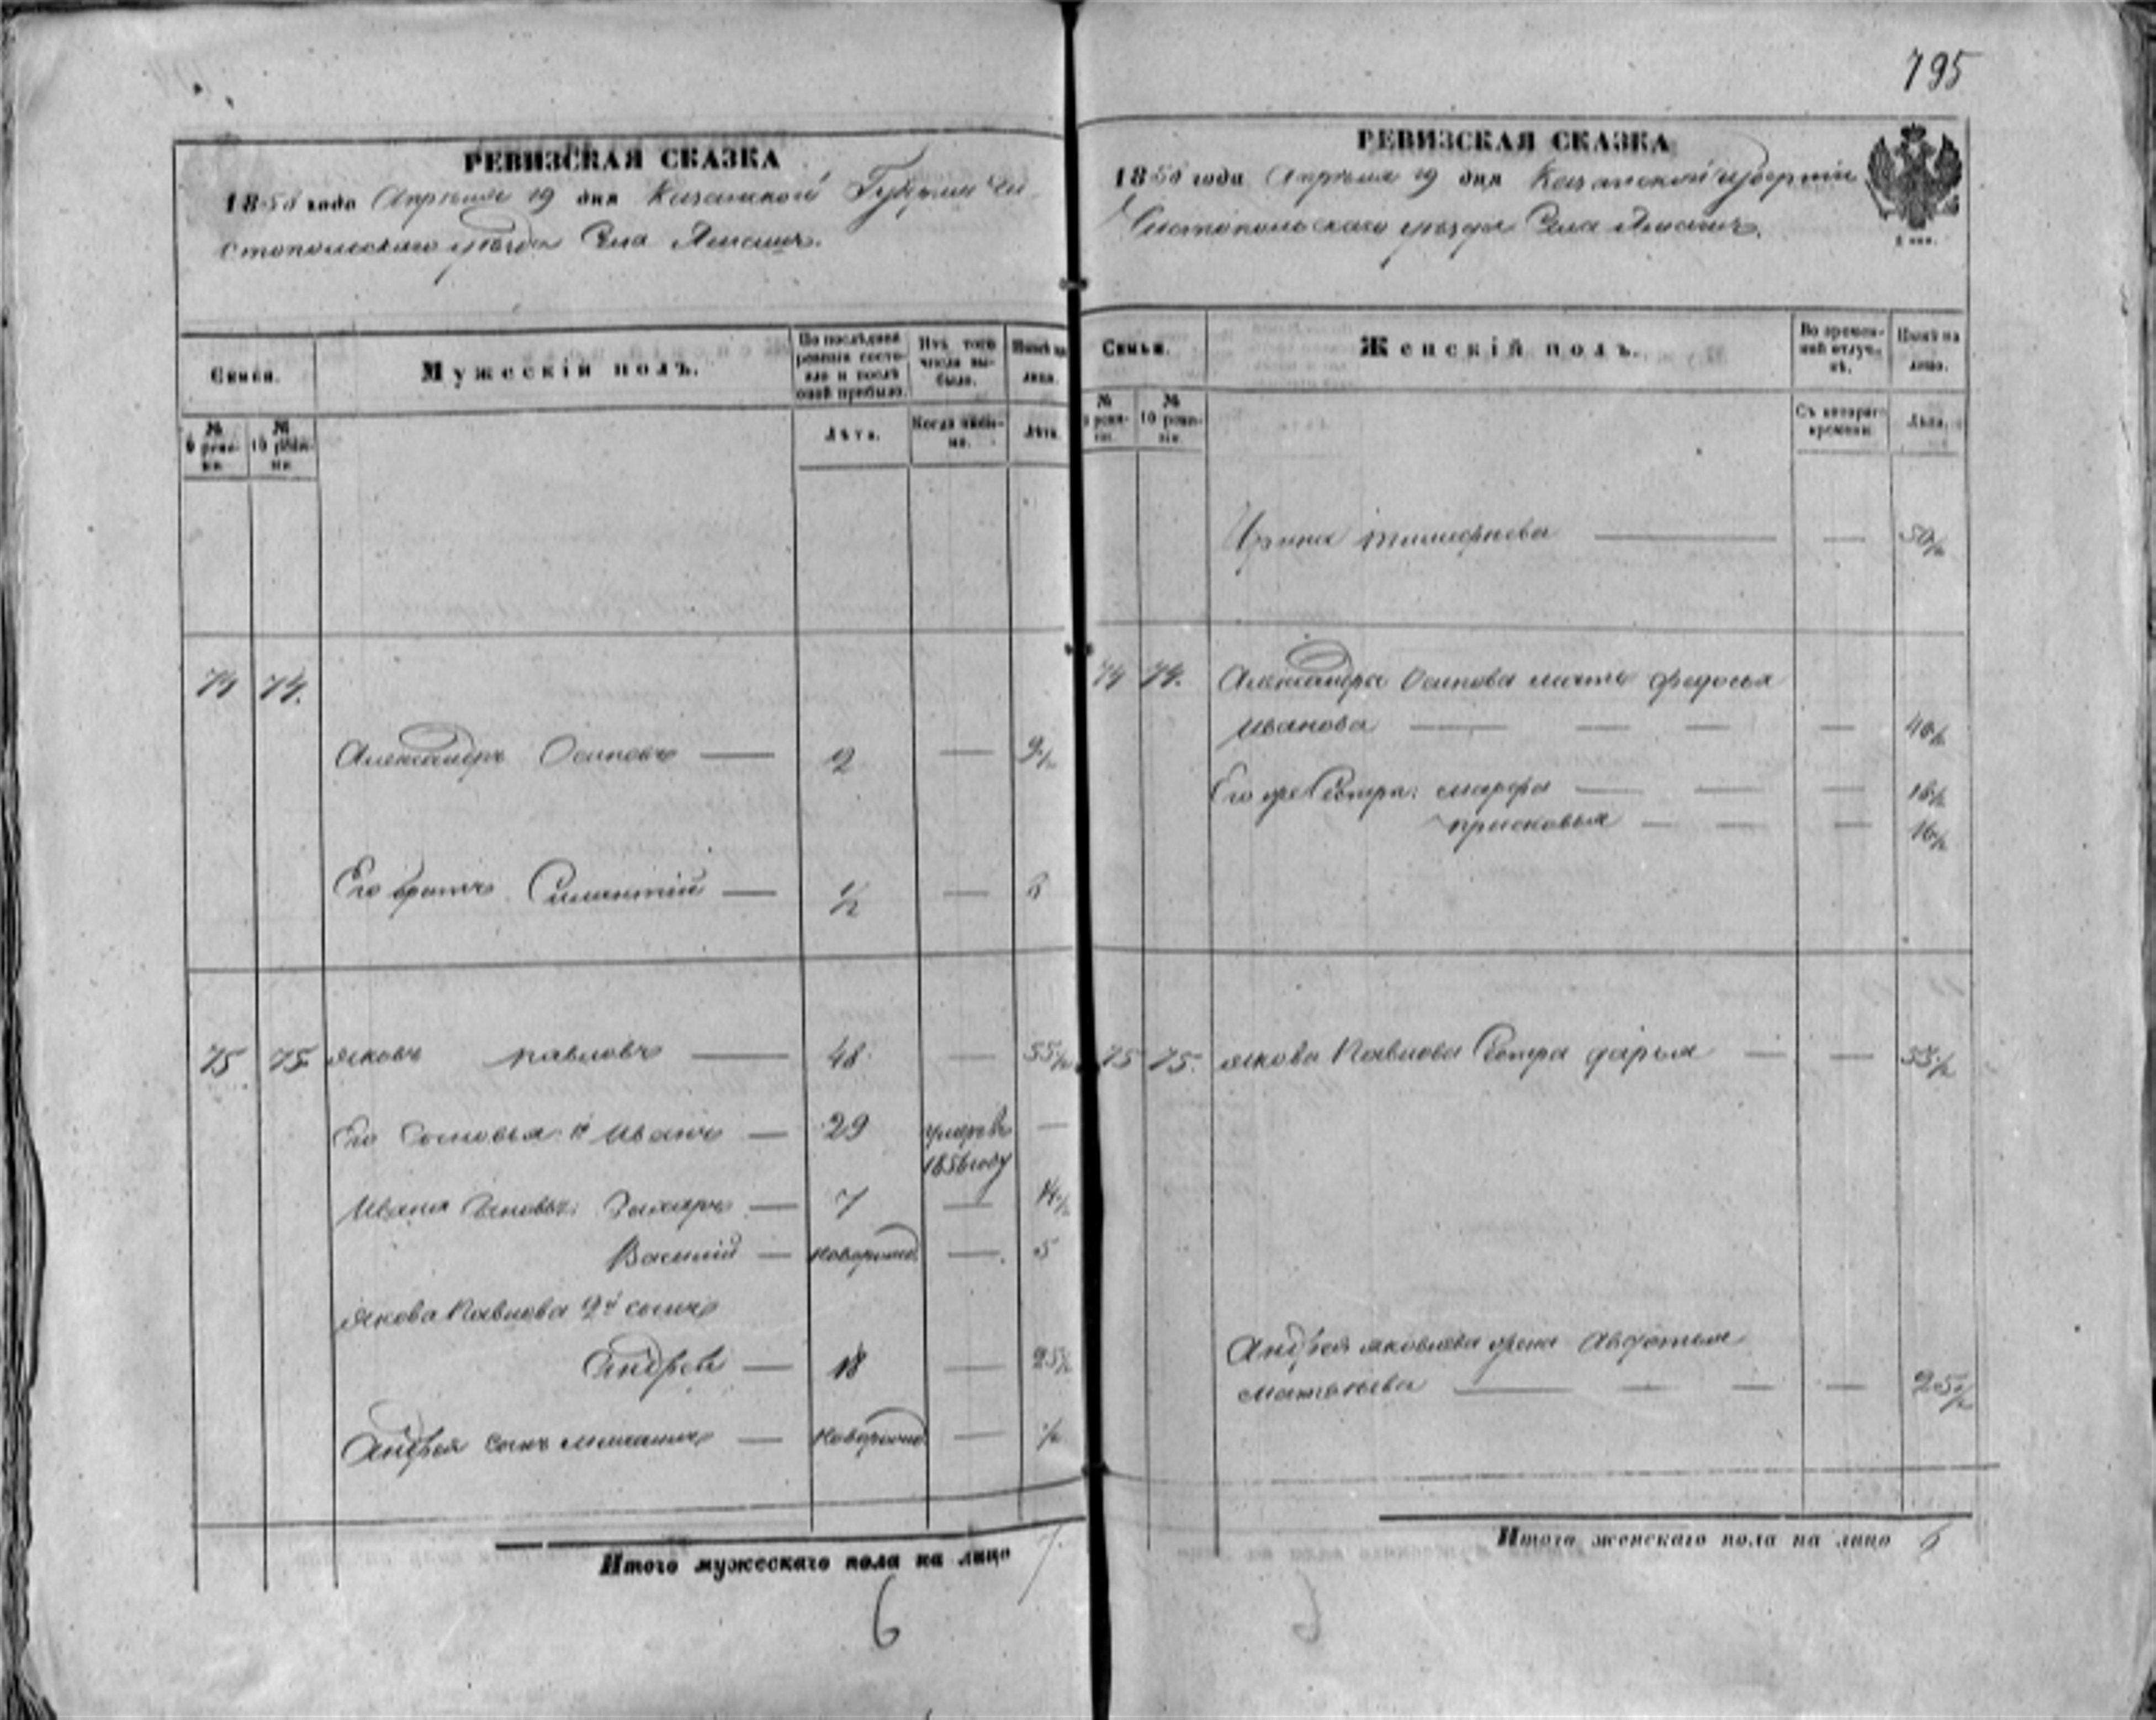 795
РЕВИЗСКАЯ СКАЗКА
1858 года Апреля 19 дня Казанской Губернiи Чи-
стопольскаго уѣзда Села
Семьи.
Мужескiй полъ.
По послѣдней ревизiи состояло и послѣ оной прибыло.
Изъ того числа выбыло.
Нынѣ на лицо.
№ 9 ревизiи.
№ 10 ревизiи.
Лѣта.
Когда именно.
Лѣта.
74 74.
Александръ Осиповъ — 2 — 9½
Его братъ Силантiй — ½ — 8
75 75 Яковъ Павловъ — 48 — 55½
Его Сыновья 1й Иванъ — 29 умеръ въ —
1856 году
Ивана Сыновья: Захаръ — 7 — 14½
Василiй — новорожд. — 5
Якова Павлова 2й сынъ
Андрей — 18 — 25½
Андрея сынъ — новорожд. — ½
Итого мужескаго пола на лицо 7
6
РЕВИЗСКАЯ СКАЗКА
1858 года Апреля 19 дня Казанской губернiи
Чистопольскаго уѣзда Села
Семьи.
Женскiй полъ.
Во временной отлучкѣ.
Нынѣ на лицо.
№ 9 ревизiи.
№ 10 ревизiи.
Съ котораго времени.
Лѣта.
Ирина — — 50½
74 74. Александра Осипова мать Федосья
Иванова — — — — 40½
Его же Сестра: Марфа — — — 18½
— — — 16½
75 75. Якова Павлова Сестра Дарья — — 53½
Андрея Яковлева жена Авдотья
Матвѣева — — — — 25½
Итого женскаго пола на лицо 6